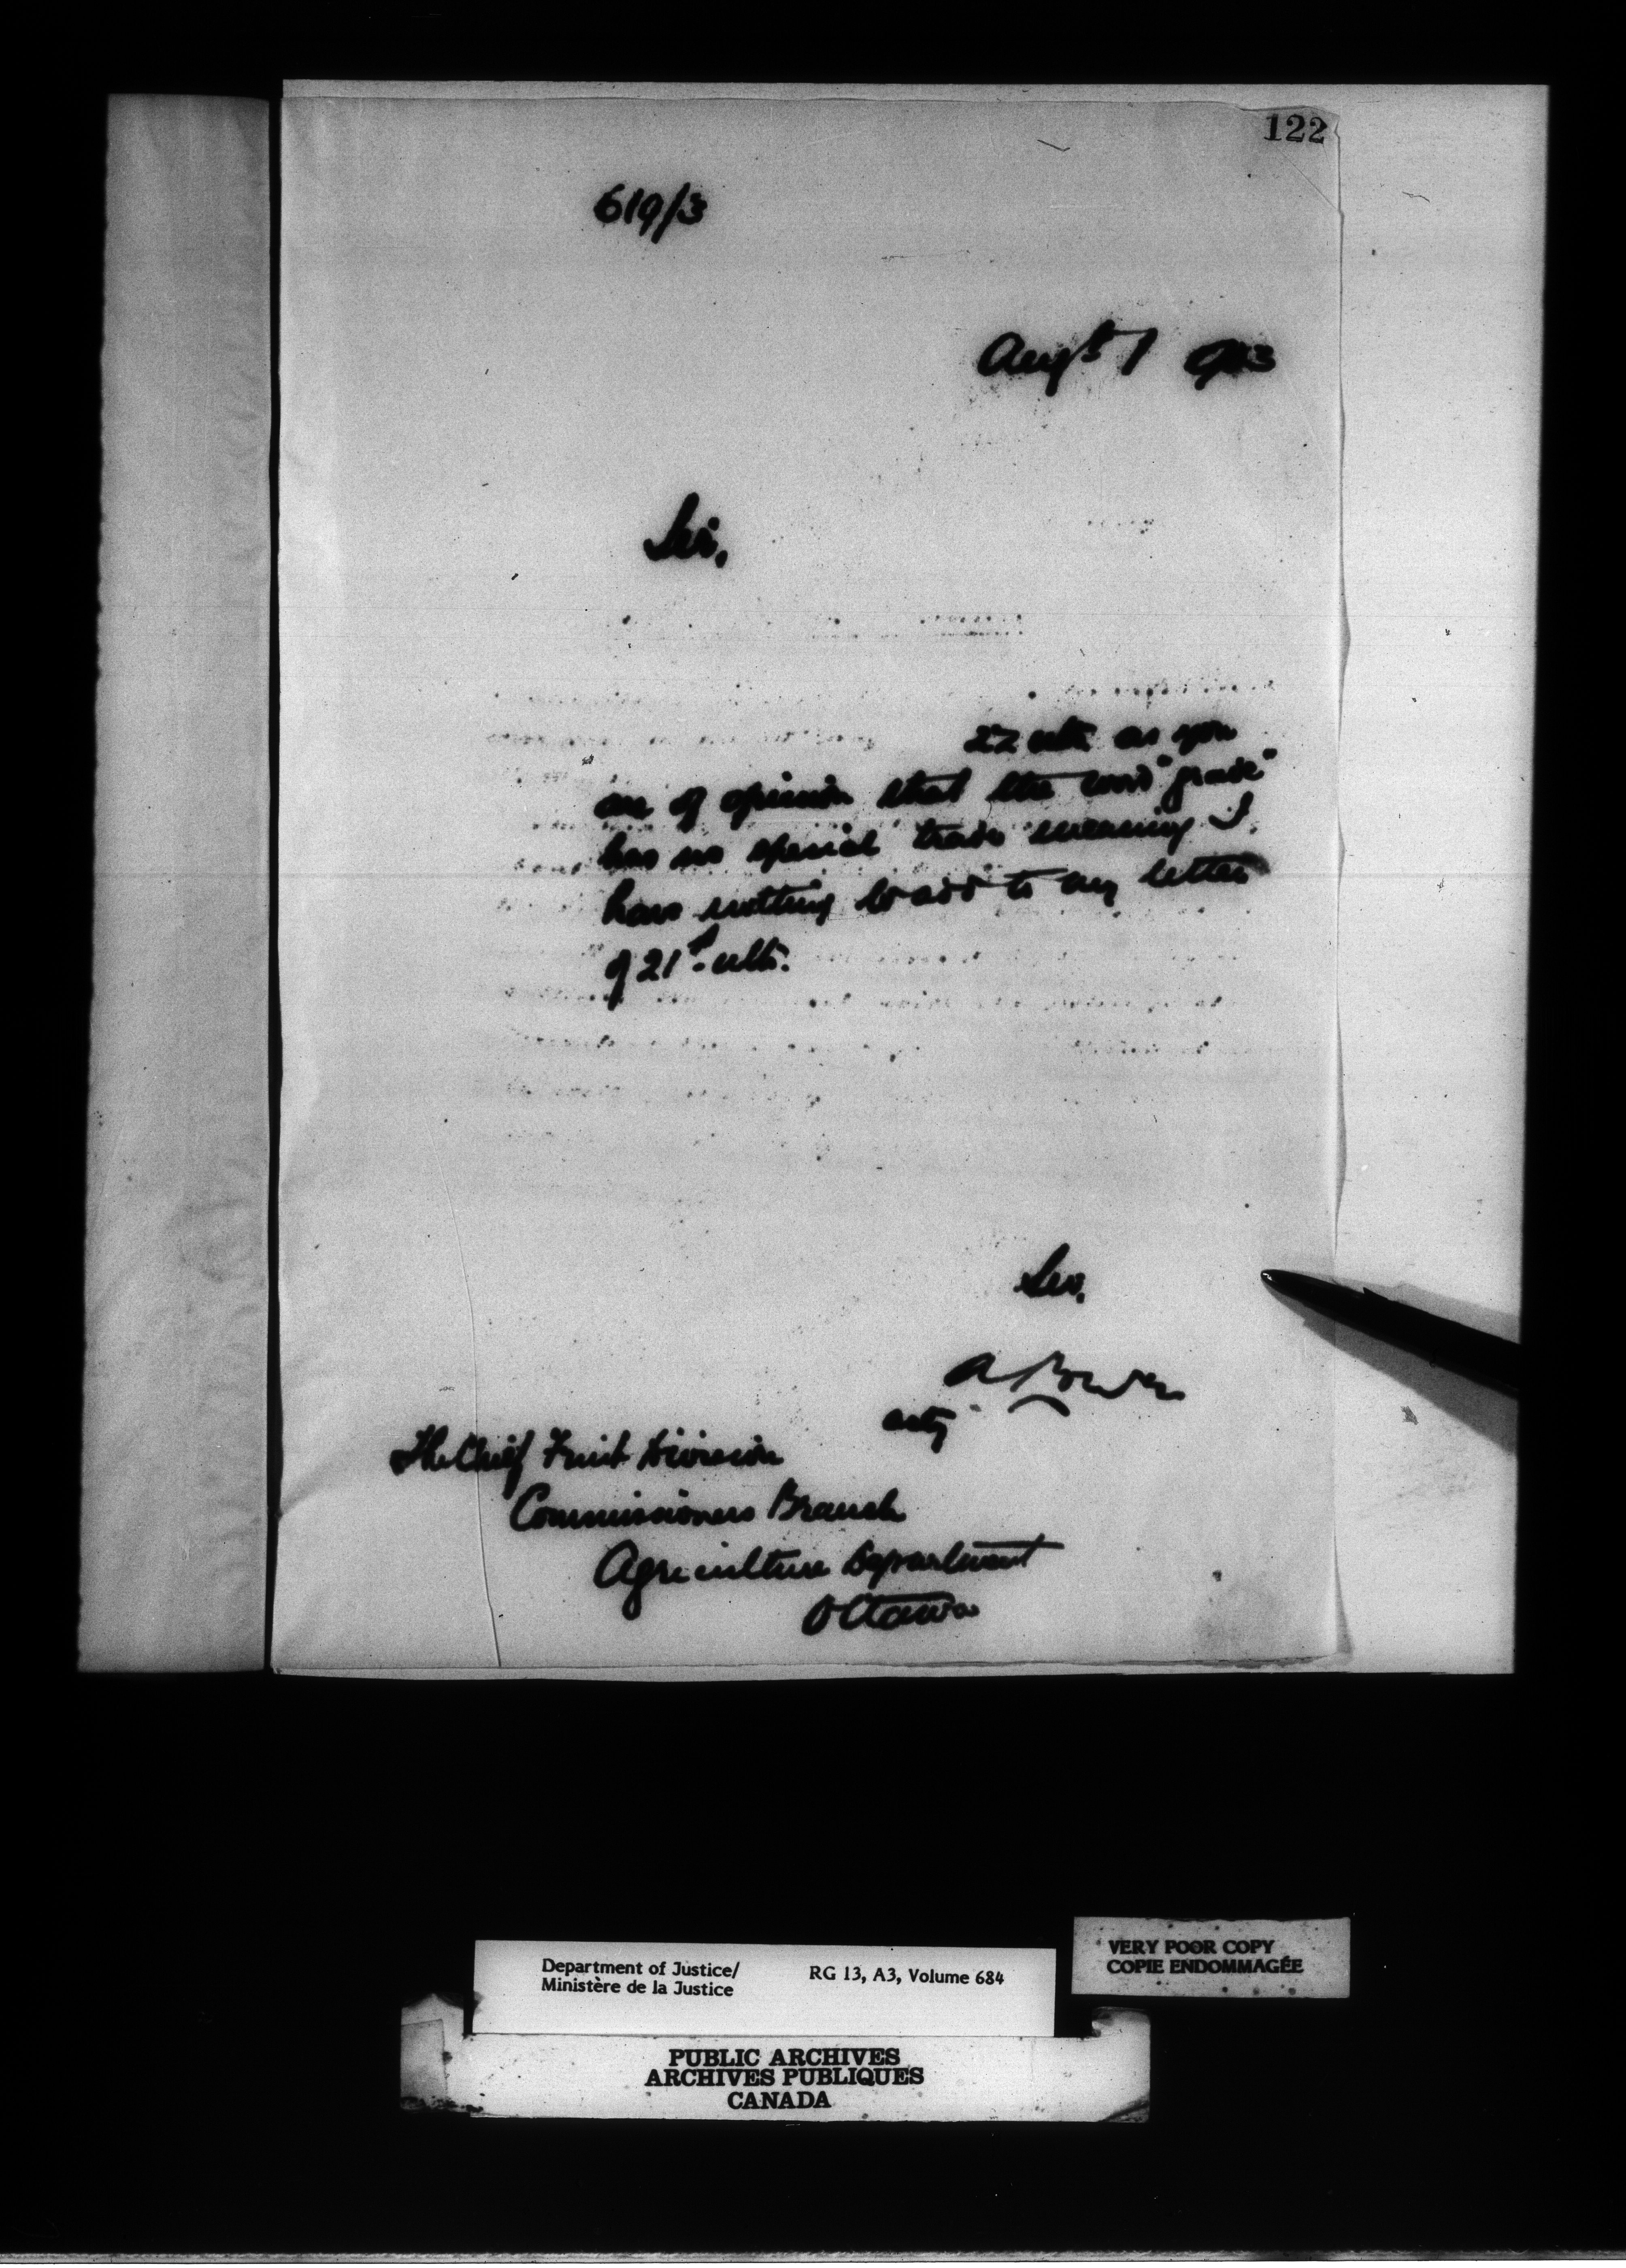 122
619/3
Augst 1 903
Sir,
22 ulto as you
are of opinion that the word "grade"
has no special trade meaning I
have nothing to add to my letter
of 21st ulto.
Sir,
A Power
actg
The Chief Fruit Division
Commissioners Branch
Agriculture Department
Ottawa
Department of Justice/
Ministère de la Justice
RG 13, A3, Volume 684
VERY POOR COPY
COPIE ENDOMMAGÉE
PUBLIC ARCHIVES
ARCHIVES PUBLIQUES
CANADA